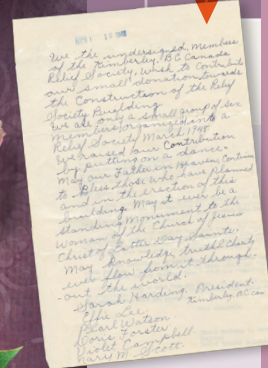 We the undersigned, Members
of the Kimberley, BC Canada
Relief Society, Wish to Contribute
our small donation towards
the Construction of the Relief
Society Building
We are only a small group of six
members, organized into a
Relief Society March 1948
We raised our Contribution
by putting on a dance.
May our Father in Heaven, Continue
to Bless those who have planned
and in the erection of this
building May it ever be a
standing Monument to the
Woman of the Church of Jesus
Christ of Latter Day Saints.
May Knowledge, truth & Charity
ever flow from it through-
out the world.
Sarah Harding, President.
Effie Lee, Kimberley, BC Can
Pearl Watson
Doris Forster
Violet Campbell
Mary M. Scott.